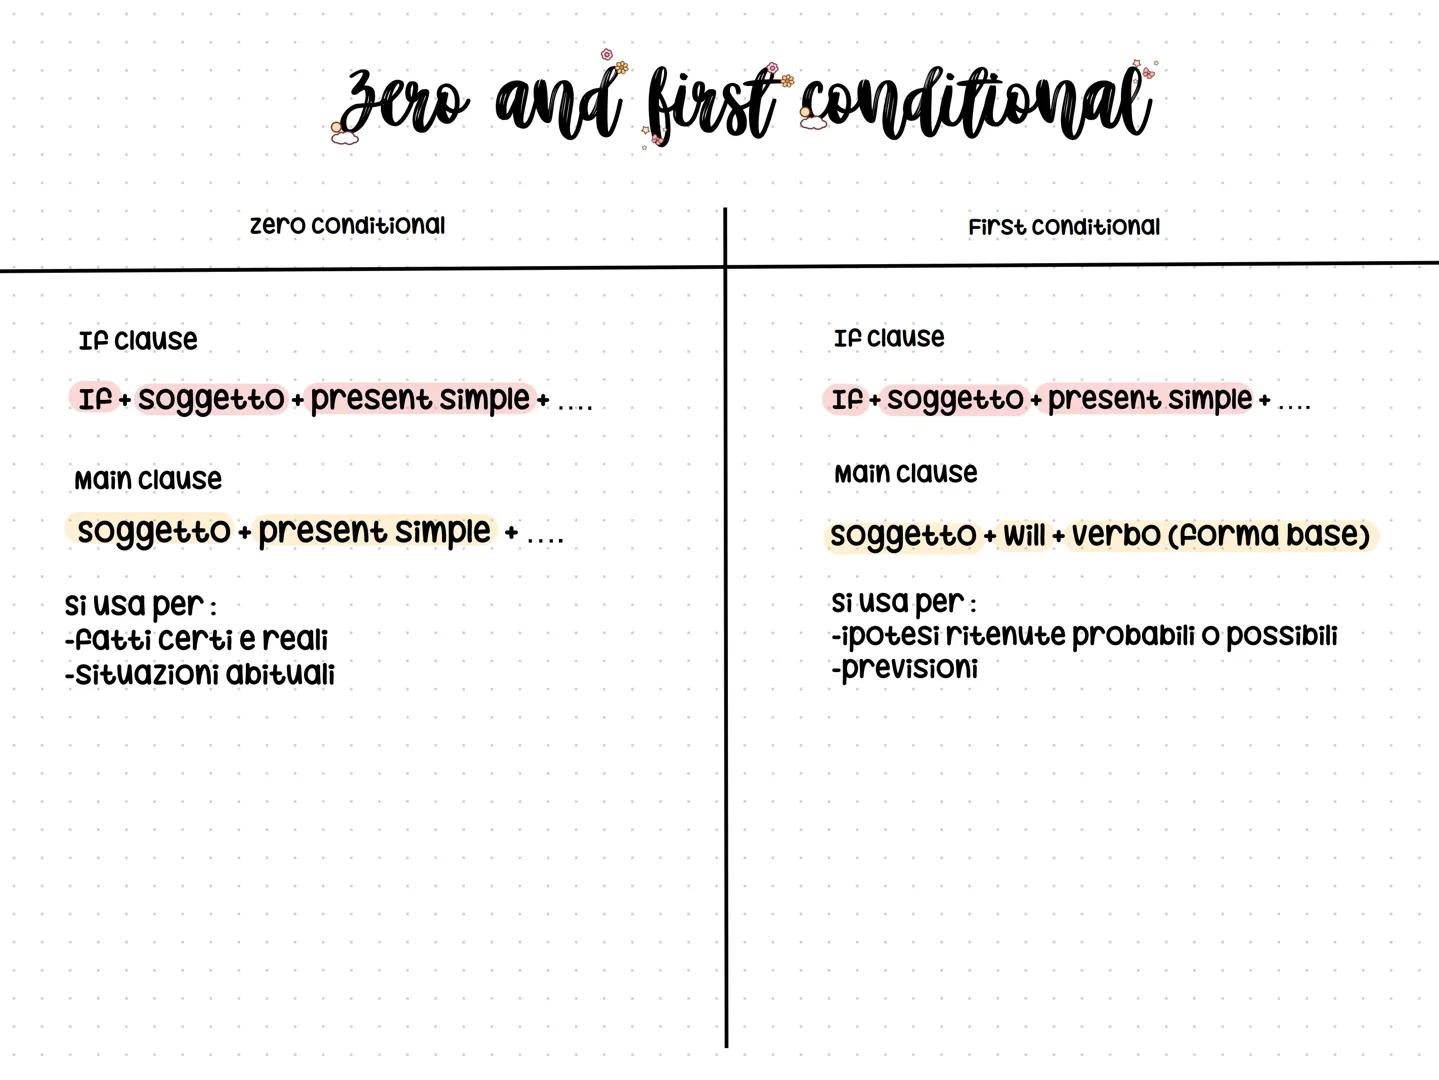 Zero and first conditional
Zero conditional
If clause
If + soggetto + present simple + ....
Main clause
soggetto + present simple + ....
si usa per :
-fatti certi e reali
-situazioni abituali
First conditional
If clause
If + soggetto + present simple + ....
Main clause
soggetto + will + verbo (forma base)
si usa per :
-ipotesi ritenute probabili o possibili
-previsioni